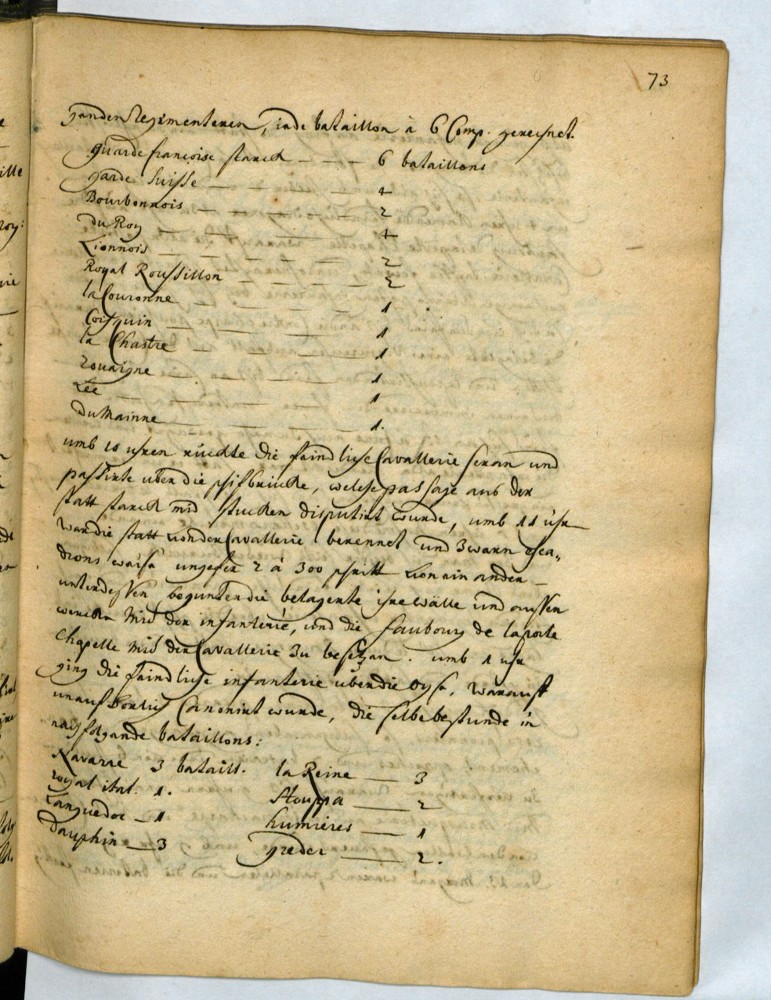 73
genden Regimenteren, jede bataillon à 6 Comp. gerechnet.
guarde françoise starck — — — 6 bataillons
garde Suisse — — — 4
Bourbonnois — — — 2
du Roy — — — 4
Lionnois — — — 2
Royal Roussillon — — — 2
la Couronne — — — 1
Coisquin — — — 1
la Chastre — — — 1
Zouaigne — — — 1
Lée — — — 1
du Mainne — — — 1.
umb 10 uhren rückte die feindliche Cavallerie heran und
passirte uber die schifbrücke, welche passage aus der
statt starck mid stucken disputirt wurde, umb 11 uhr
war die statt von der Cavallerie berennet und 3 waren esca-
drons weise ungefer 2 à 300 schritt von ein ander —
unterdessen begunten die belagerte ihre wälle und aussen
wercken mid der infanterie, und die faubourg de la porte
Chapelle mid der Cavallerie zu besetzen. umb 1 uhr
ging die feindliche infanterie uber die Oyse, warauf
unaufhorlich Canonirt wurde, die selbe bestunde in
nachfolgende bataillons:
Navarre 3 bataill. la Reine — 3
royal ital: 1. Stouppa — 2
Languedoc — 1 humières — 1
Dauphin — 3 greder — 2.